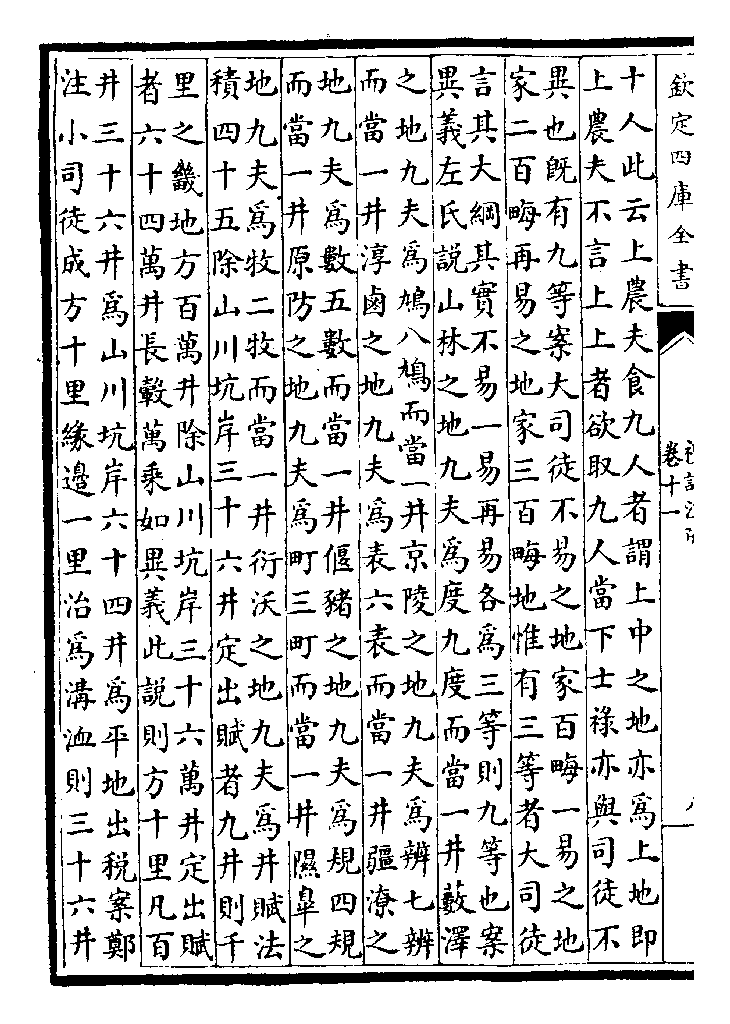 欽定四庫全書
卷十一
十人此云上農夫食九人者謂上中之地亦爲上地即
上農夫不言上上者欲取九人當下士祿亦與司徒不
異也旣有九等案大司徒不易之地家百畮一易之地
家二百畮再易之地家三百畮地惟有三等者大司徒
言其大綱其實不易一易再易各爲三等則九等也案
異義左氏説山林之地九夫爲度九度而當一井藪澤
之地九夫爲鳩八鳩而當一井京陵之地九夫爲辨七辨
而當一井淳鹵之地九夫爲表六表而當一井疆潦之
地九夫爲數五數而當一井偃豬之地九夫爲規四規
而當一井原防之地九夫爲町三町而當一井隰臯之
地九夫爲牧二牧而當一井衍沃之地九夫爲井賦法
積四十五除山川坑岸三十六井定出賦者九井則千
里之畿地方百萬井除山川坑岸三十六萬井定出賦
者六十四萬井長轂萬乗如異義此説則方十里凡百
井三十六井爲山川坑岸六十四井爲平地出稅案鄭
注小司徒成方十里緣邉一里治爲溝洫則三十六井